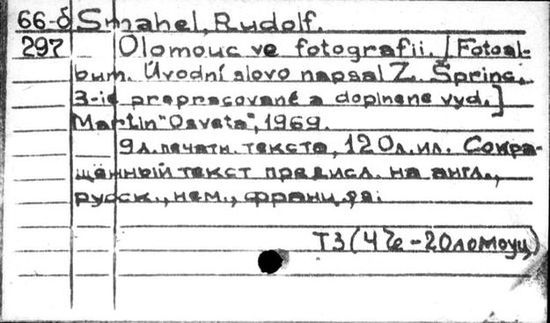 66-б Smahel, Rudolf.
297 Olomouc ve fotografii. [Fotoal-
bum. Úvodní slovo napsal Z. Šprinc.
3-ie prepracované a doplnene vyd.]
Martin "Osveta", 1969.
9 л. печатн. текста, 120 л. ил. Сокра-
щённый текст предисл. на англ.,
русск., нем., франц. яз.
ТЗ (4Че-2Оломоуц)